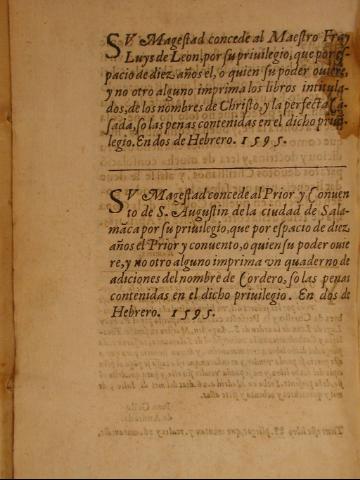 SV Magestad concede al Maestro Fray
Luys de Leon, por su priuilegio, que por es-
pacio de diez años el, o quien su poder ouiere,
y no otro alguno imprima los libros intitula-
dos, de los nombres de Christo, y la perfecta Ca-
sada, so las penas contenidas en el dicho priui-
legio. En dos de Hebrero. 1595.
SV Magestad concede al Prior y Conuen
to de S. Augustin de la ciudad de Sala-
māca por su priuilegio, que por espacio de diez
años el Prior y conuento, o quien su poder ouie
re, y no otro alguno imprima vn quaderno de
adiciones del nombre de Cordero, so las penas
contenidas en el dicho priuilegio. En dos de
Hebrero. 1595.